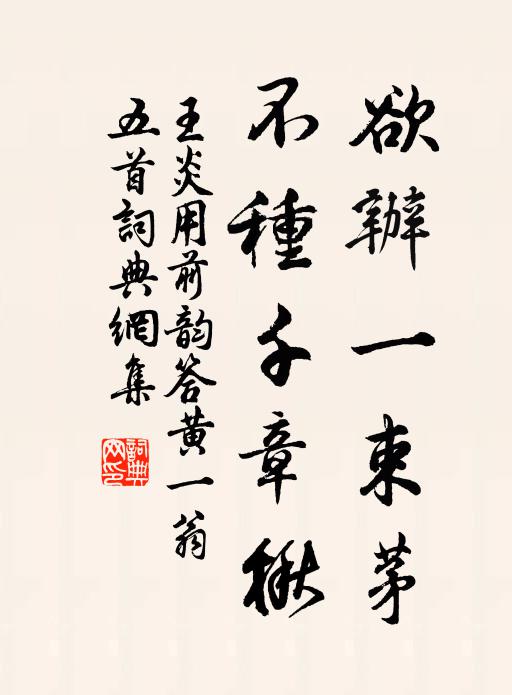 欲辦一束茅
不種千章楸
王炎用前韵答黄一翁
五首詞典網集
詞典网印